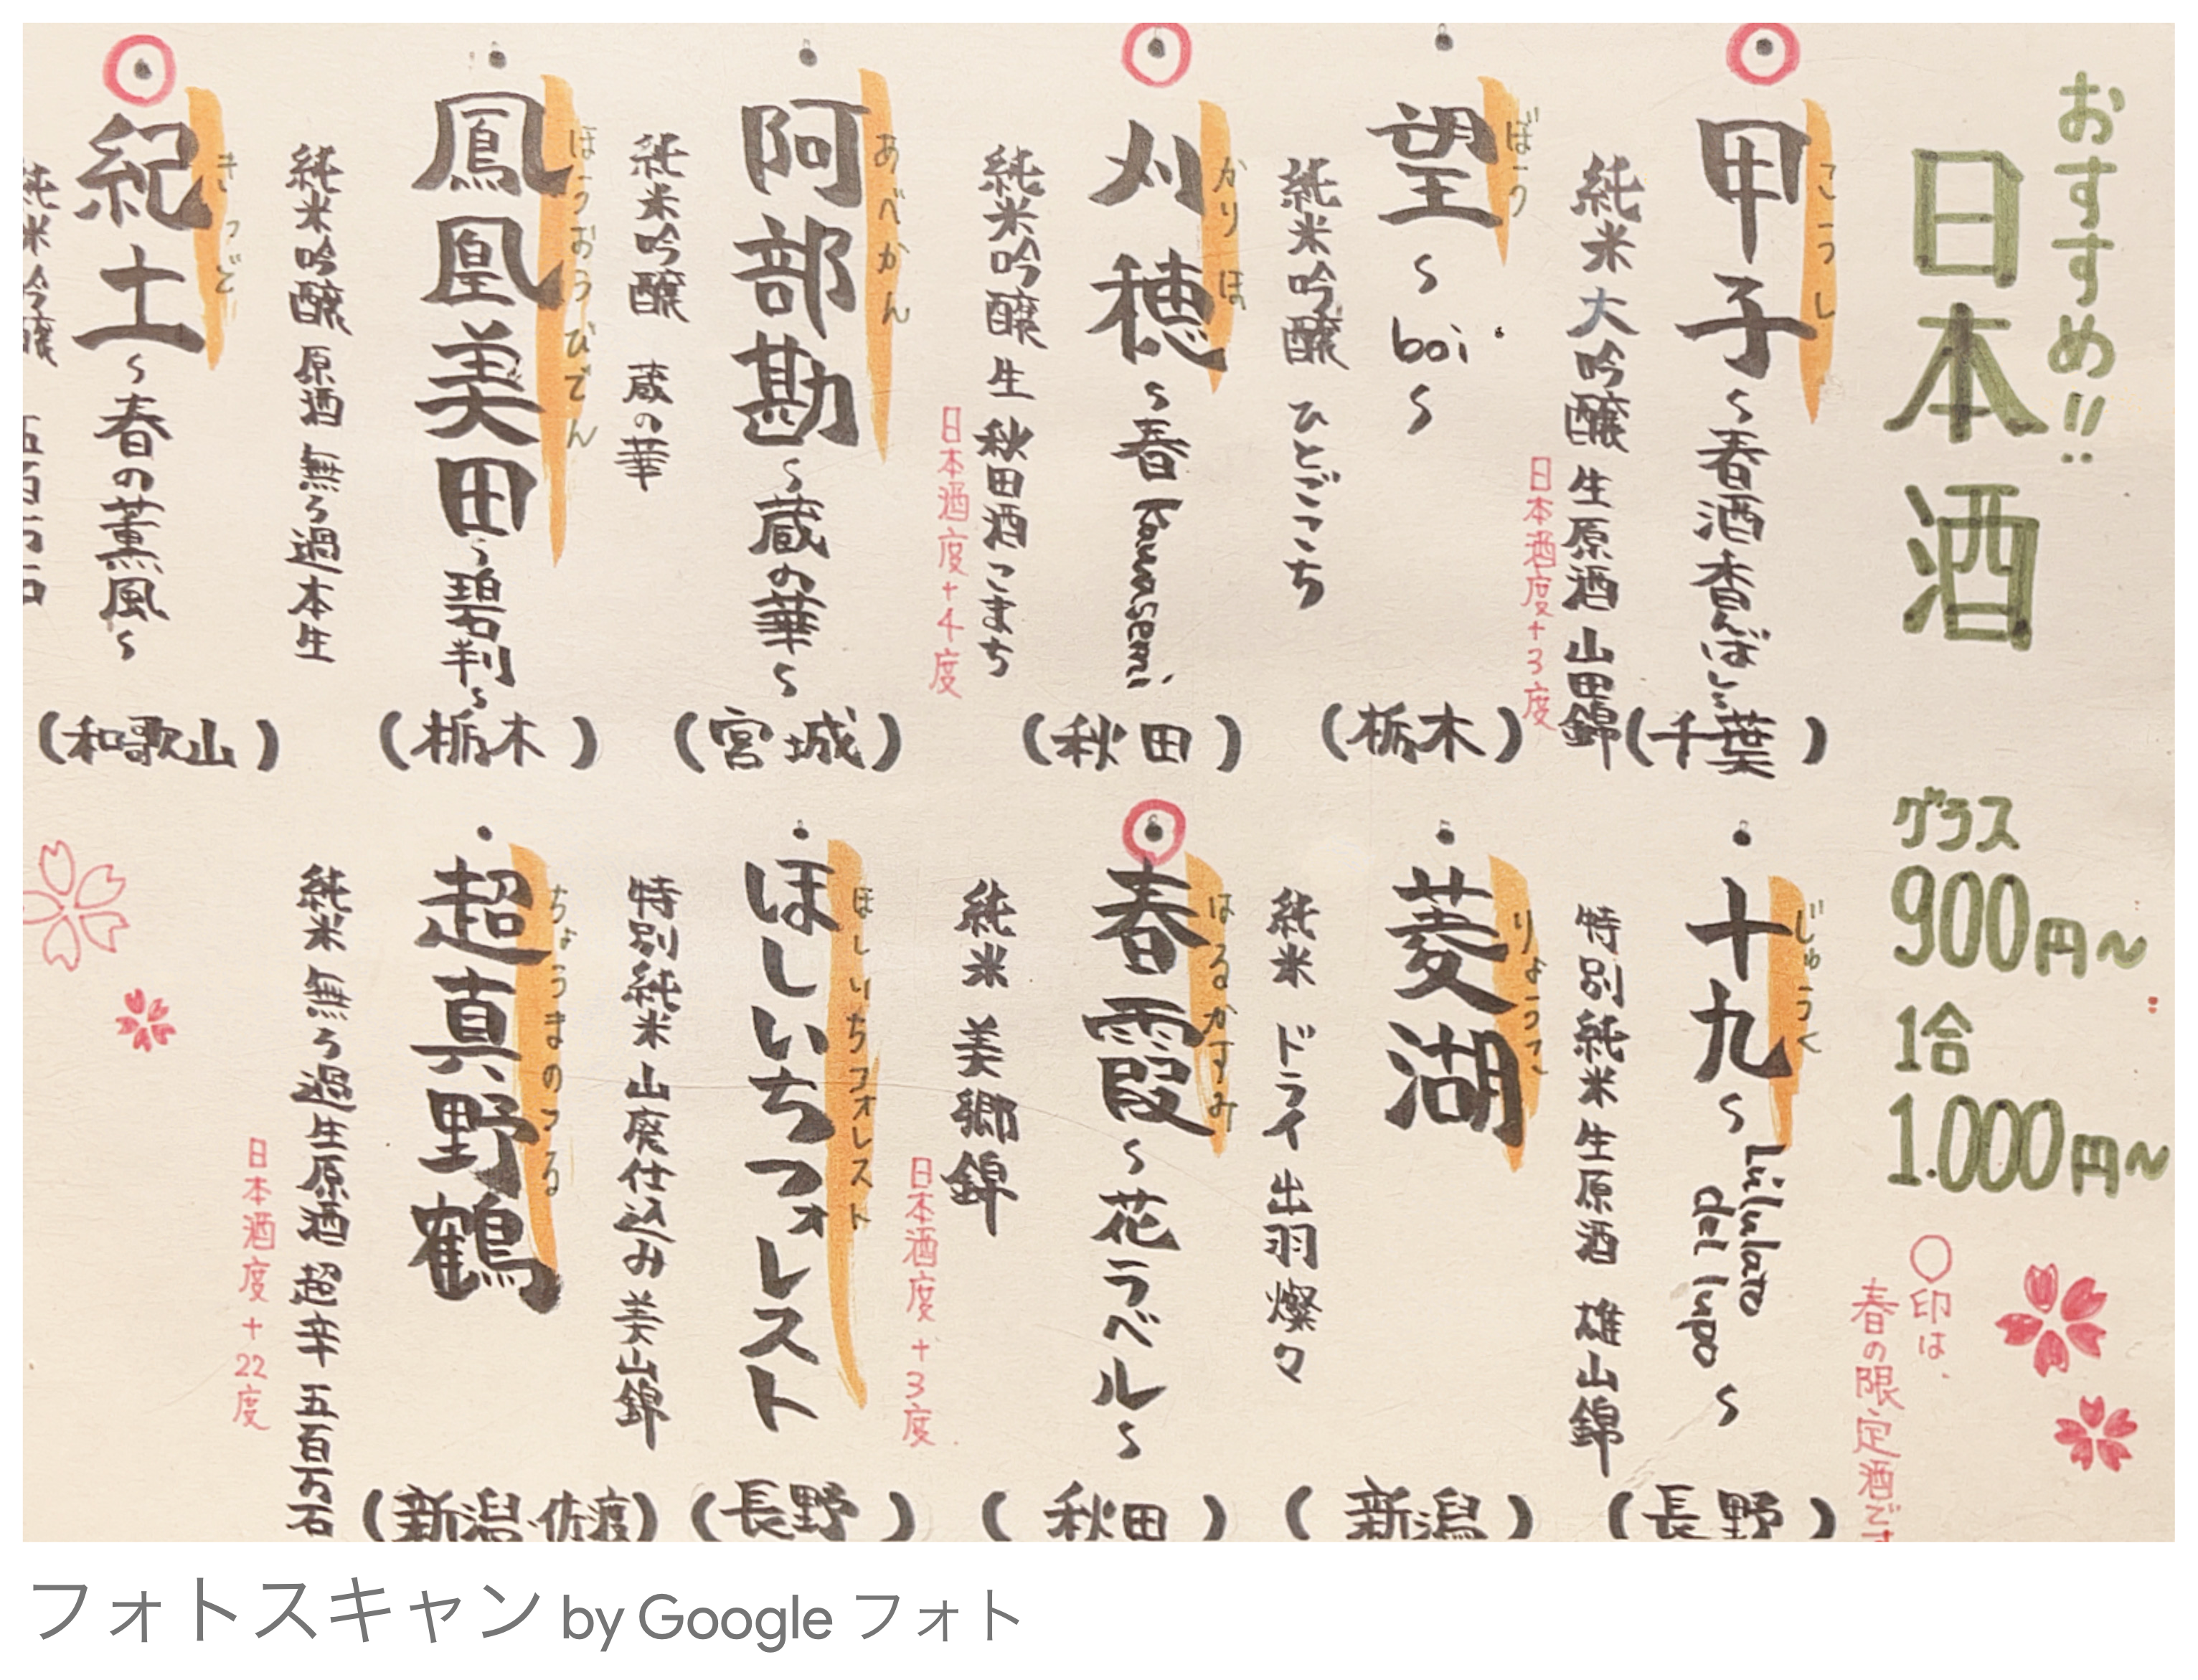 おすすめ!!
日本酒
グラス
900円~
1合
1.000円~
○印は、
春の限定酒です
こうし
甲子~春酒香んばし~
(千葉)
純米大吟醸 生原酒 山田錦
日本酒度+3度
ぼう
望~boi~
(栃木)
純米吟醸 ひとごこち
かりほ
刈穂~春kawasemi~
(秋田)
純米吟醸 生 秋田酒こまち
日本酒度+4度
あべかん
阿部勘~蔵の華~
(宮城)
純米吟醸 蔵の華
ほうおうびでん
鳳凰美田~碧判~
(栃木)
純米吟醸 原酒 無ろ過本生
きっど
紀土~春の薫風~
(和歌山)
純米吟醸 五百万石
じゅうく
十九~L'ululato del lupo~
(長野)
特別純米 生原酒 雄山錦
りょうこ
菱湖
(新潟)
純米 ドライ 出羽燦々
はるかすみ
春霞~花ラベル~
(秋田)
純米 美郷錦
日本酒度+3度
ほしいちフォレスト
ほしいちフォレスト
(長野)
特別純米 山廃仕込み 美山錦
ちょうまのつる
超真野鶴
(新潟・佐渡)
純米 無ろ過生原酒 超辛 五百万石
日本酒度+22度
フォトスキャン by Google フォト